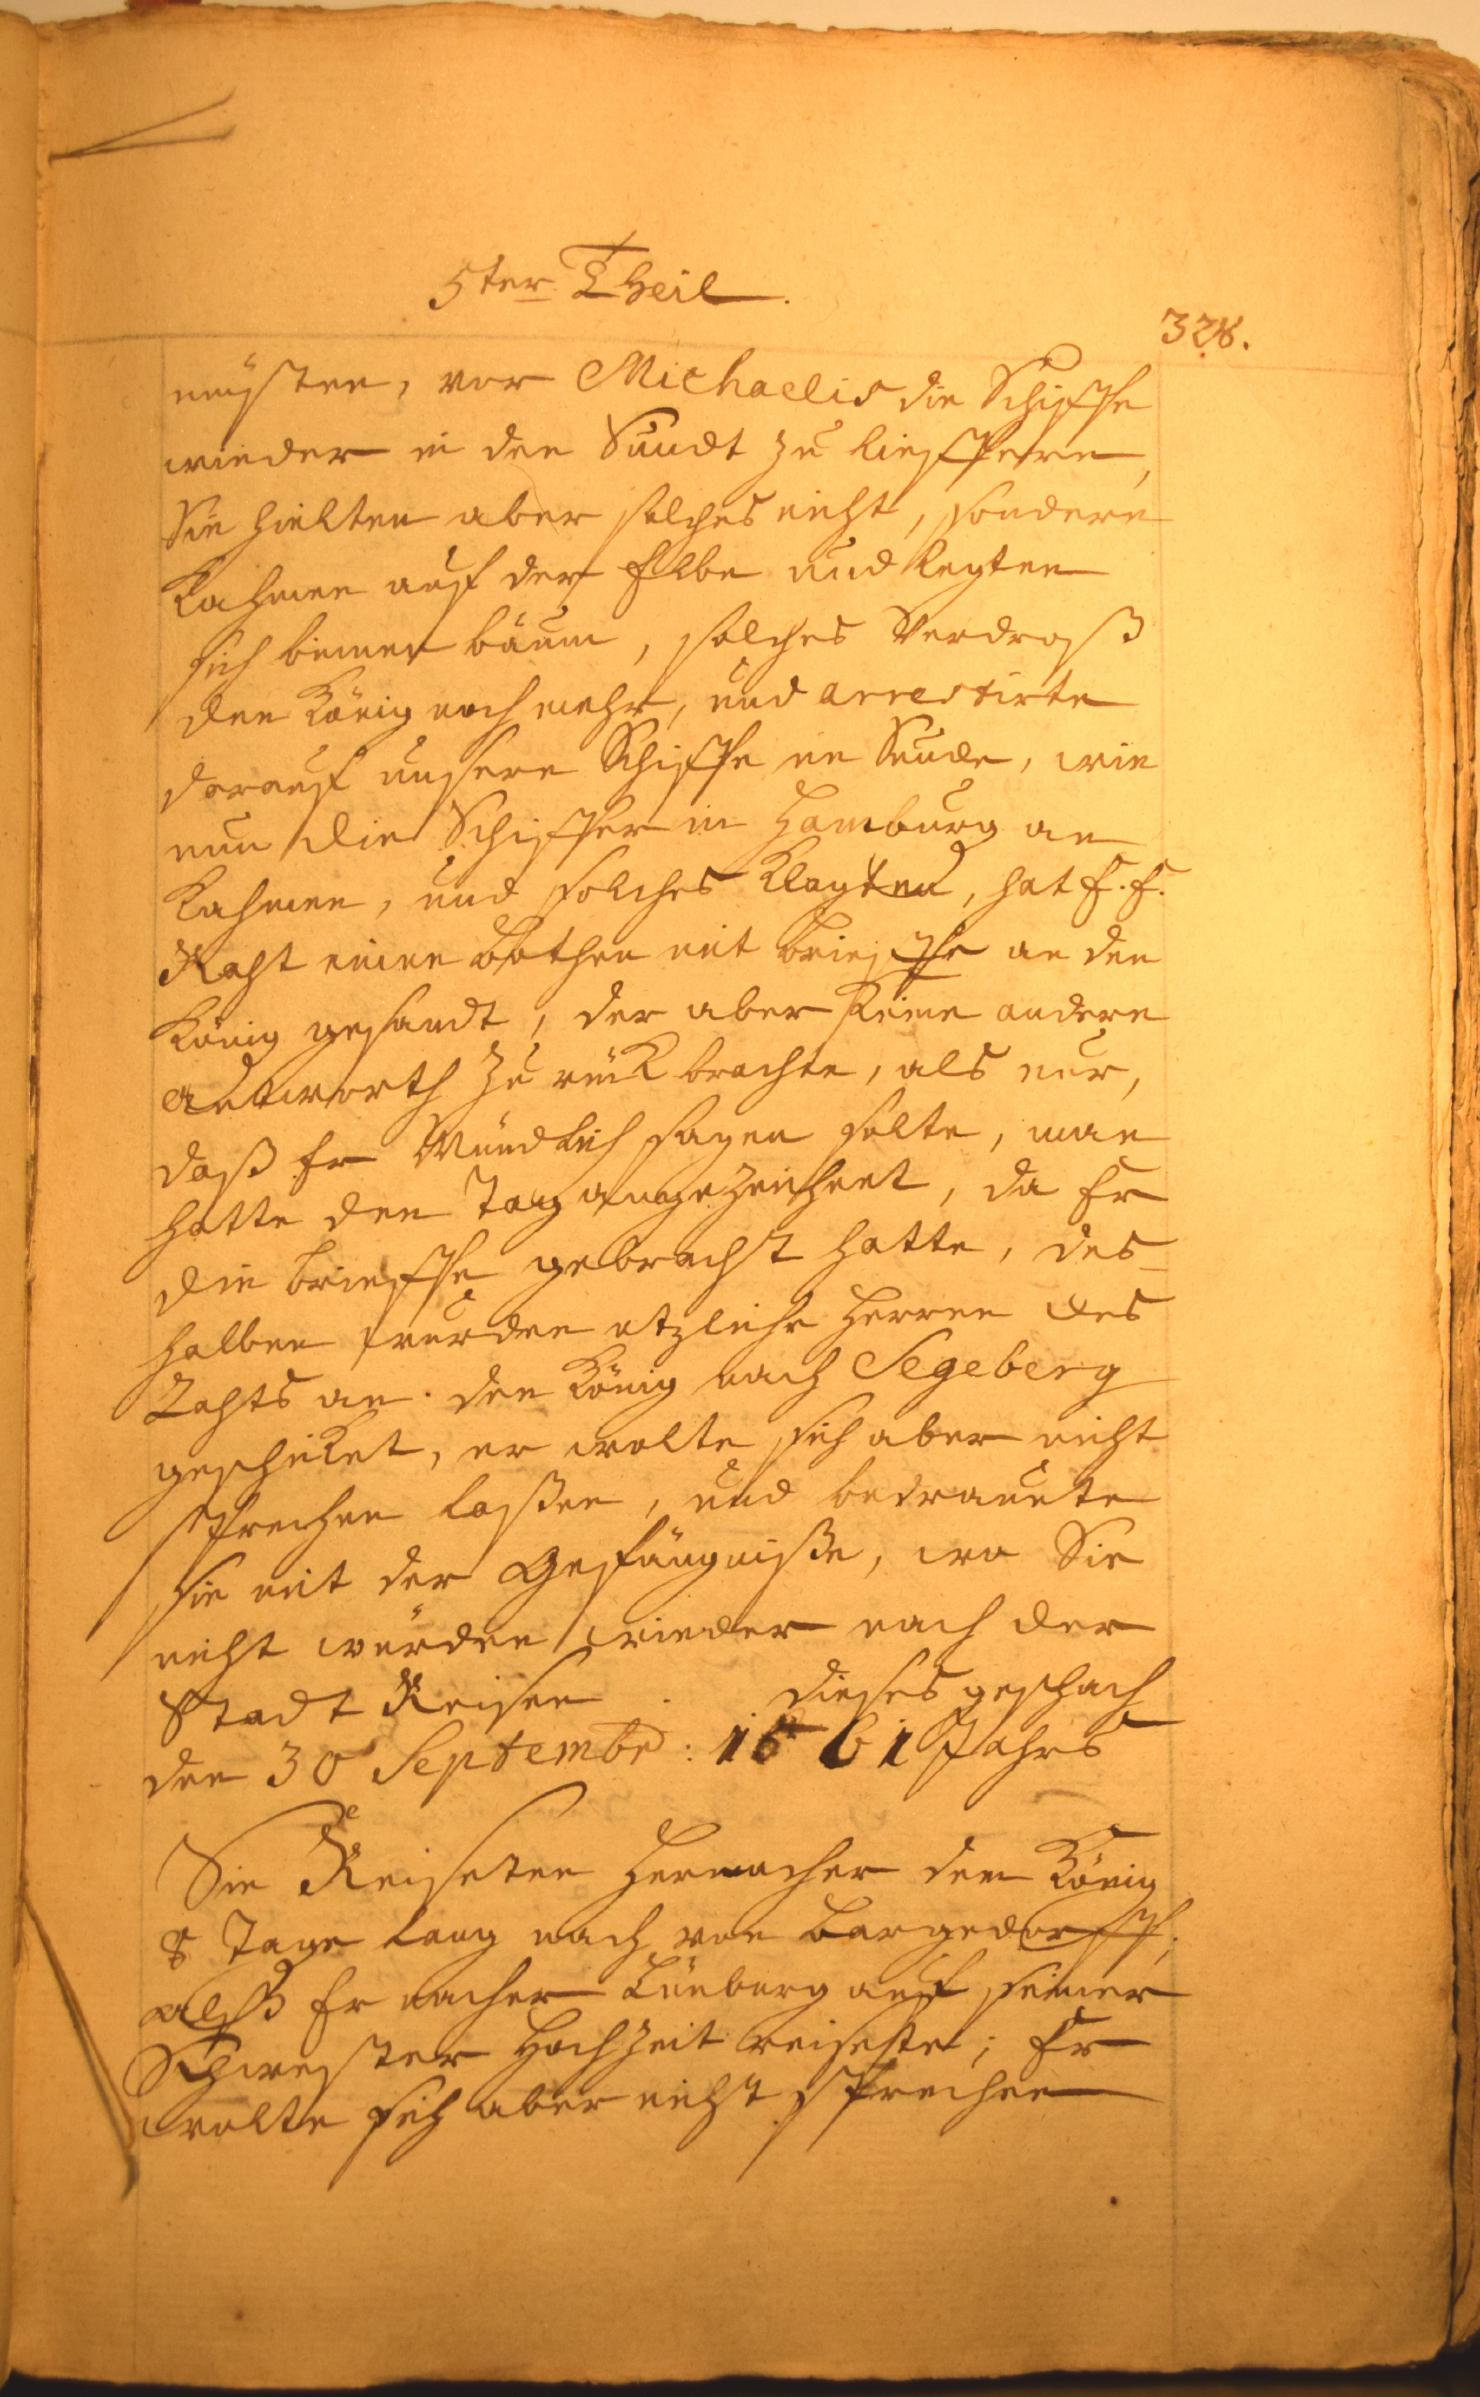 5ter Theil.
328.
müsten, vor Michaelis die Schiffe
wieder in den Sundt zu lieffern,
Sie hielten aber solches nicht, sondern
Kahmen auf der Elbe und legten
sich binnen bäum, solches Verdroß
den König noch mehr, und arrestirte
darauf unsere Schiffe im Sunde, wie
nun die Schiffer in Hamburg an
Kahmen, und solches Klagten, hat E. E.
Raht einen bothen mit brieffe an den
König gesandt, der aber keine andere
andtworth zu rück brachte, als nur,
daß Er Mündlich sagen solte, man
hatte den Tag angezeichnet, da Er
die brieffe gebracht hatte, des-
halben wurden etzliche Herren des
Rahts an den König nach Segeberg
geschicket, er wolte sich aber nicht
sprechen laßen, und bedrauete
sie mit der Gefängniße, wo Sie
nicht würden wieder nach der
Stadt Reisen. dieses geschach
den 30 Septembr: 1561 Jahrs
Sie Reiseten hernacher dem König
8 Tage lang nach von bargedorff,
alß Er nacher Lüneburg auf seiner
Schwester Hochzeit reisete; Er
wolte sich aber nicht sprechen